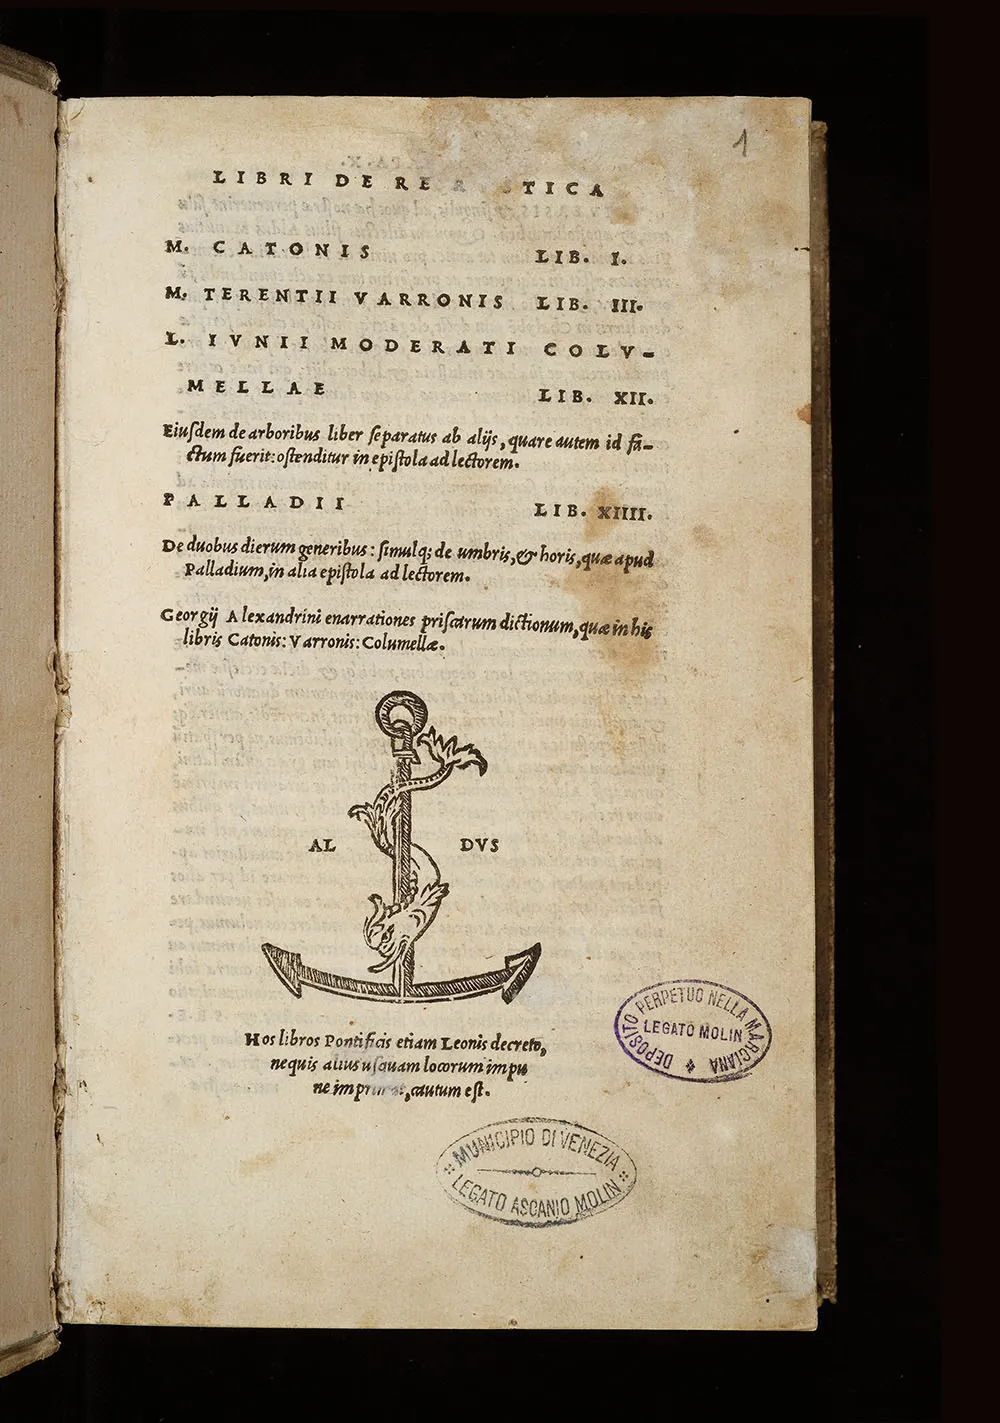 1
LIBRI DE RE STICA
M. CATONIS LIB. I.
M. TERENTII VARRONIS LIB. III.
L. IVNII MODERATI COLV-
MELLAE LIB. XII.
Eiusdem de arboribus liber separatus ab alijs, quare autem id fa-
ctum fuerit: ostenditur in epistola ad lectorem.
PALLADII LIB. XIIII.
De duobus dierum generibus: simulq; de umbris, & horis, quæ apud
Palladium, in alia epistola ad lectorem.
Georgij Alexandrini enarrationes priscarum dictionum, quæ in his
libris Catonis: Varronis: Columellæ.
AL DVS
Hos libros Pontificis etiam Leonis decreto,
nequis alius usquam locorum impu
ne imprimat, cautum est.
DEPOSITO PERPETUO NELLA MARCIANA
LEGATO MOLIN
MUNICIPIO DI VENEZIA
LEGATO ASCANIO MOLIN